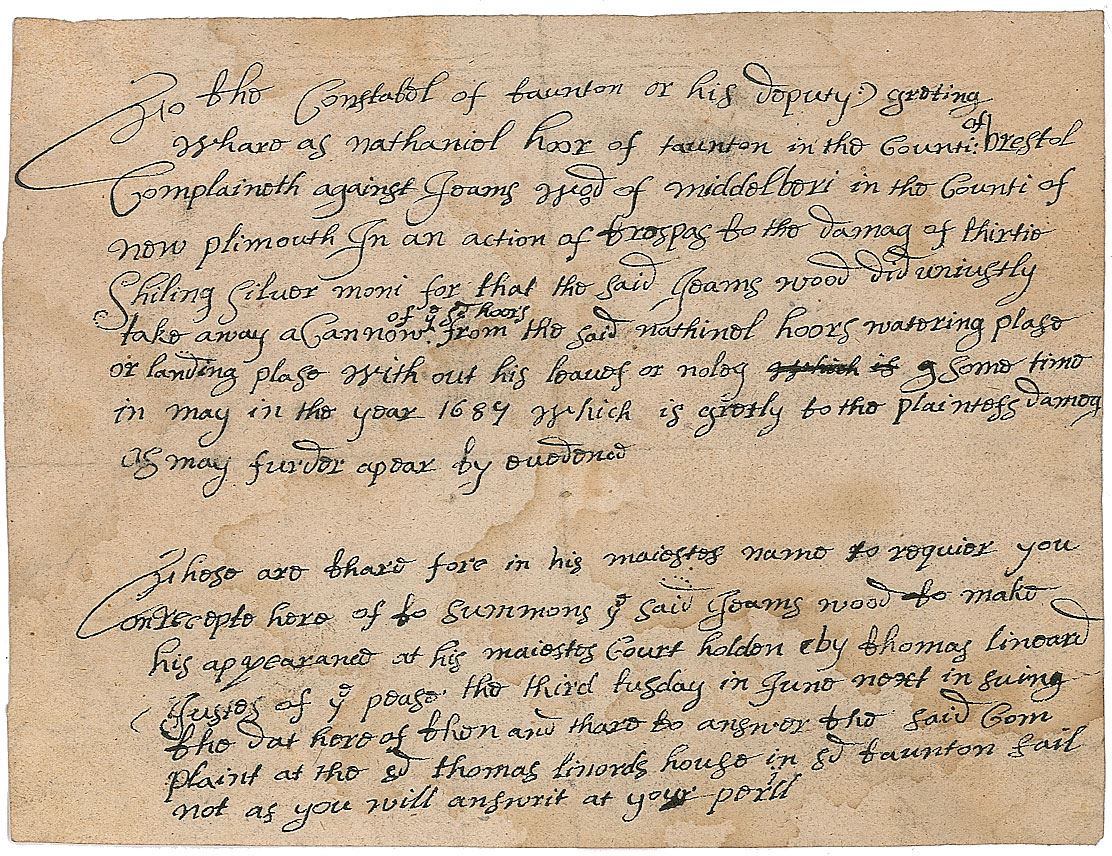 To the Constabel of taunton or his deputy:) greting
Whare as nathaniel hoor of taunton in the Counti: of brestol
Complaineth against Jeams wod of middelberi in the Counti of
new plimouth In an action of trespas to the damag of thirtie
Shiling Silver moni for that the said Jeams wood did uniustly
take away a Cannow of ye sd hoors from the said nathinel hoors watering plase
or landing plase With out his leaves or noleg which is some time
in may in the year 1687 which is gretly to the dameg
as may furder apear by evedenc
These are thare fore in his maiestes name to requier you
on recepte here of to summons ye said Jeams wood to make
his appearanc at his maiestes Court holden by thomas lineard
Justes of ye pease the third tusday in June next in suing
the dat here of then and thare to answer the said Com
plaint at the sd thomas linords house in sd taunton fail
not as you will answrit at your perll